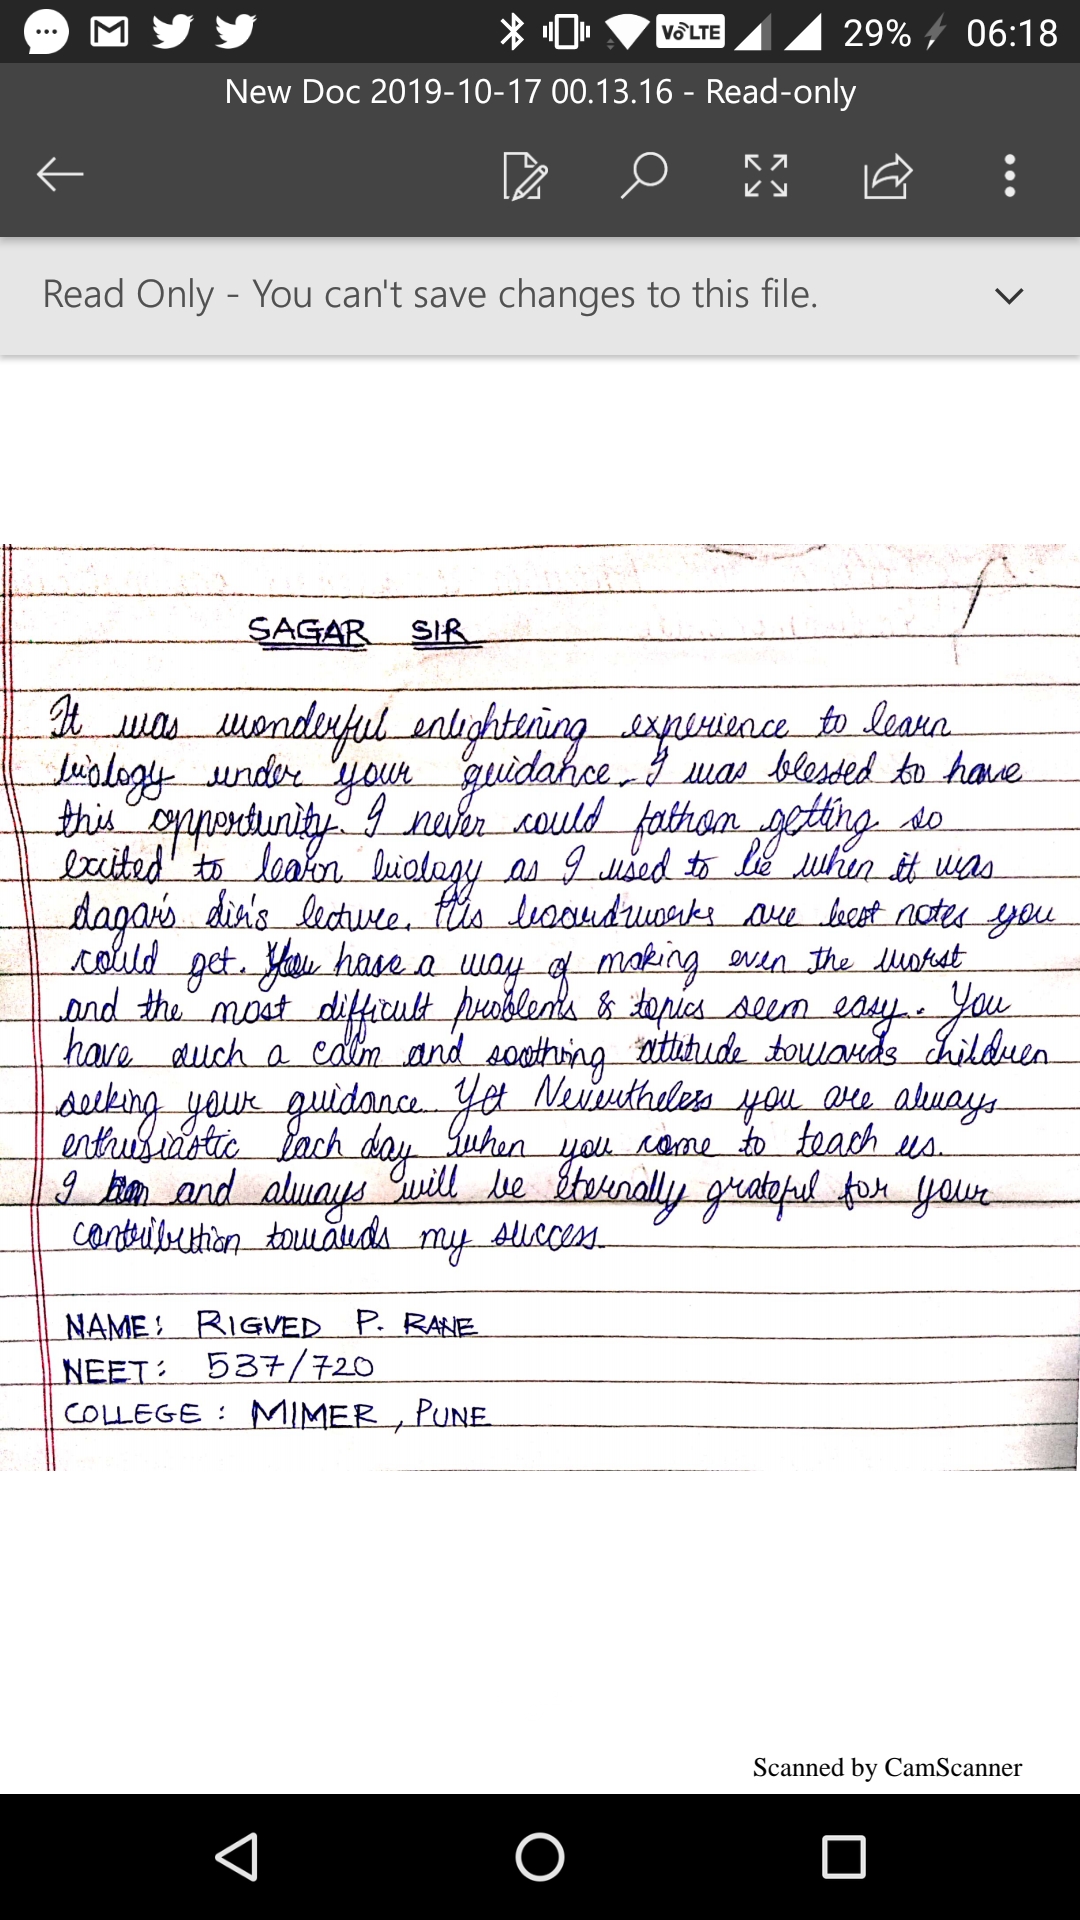 VoLTE 29% 06:18
New Doc 2019-10-17 00.13.16 - Read-only
Read Only - You can't save changes to this file.
SAGAR SIR
It was wonderful enlightening experience to learn
biology under your guidance. I was blessed to have
this opportunity. I never could fathom getting so
excited to learn biology as I used to be when it was
sagar's sir's lecture. His boardworks are best notes you
could get. You have a way of making even the worst
and the most difficult problems & topics seem easy. You
have such a calm and soothing attitude towards children
seeking your guidance. Yet Nevertheless you are always
enthusiastic each day when you come to teach us.
I am and always will be eternally grateful for your
contribution towards my success.
NAME: RIGVED P. RANE
NEET: 537/720
COLLEGE: MIMER, PUNE
Scanned by CamScanner